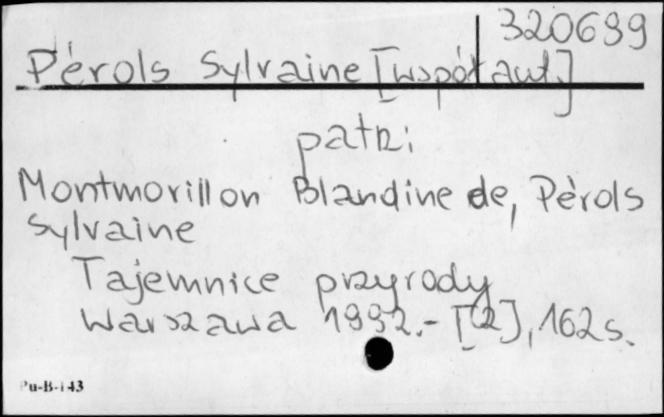 320689
Pérols Sylvaine [współaut.]
patrz:
Montmorillon Blandine de, Pèrols
Sylvaine
Tajemnice przyrody
Warszawa 1992.- [2], 162 s.
Pu-B-143